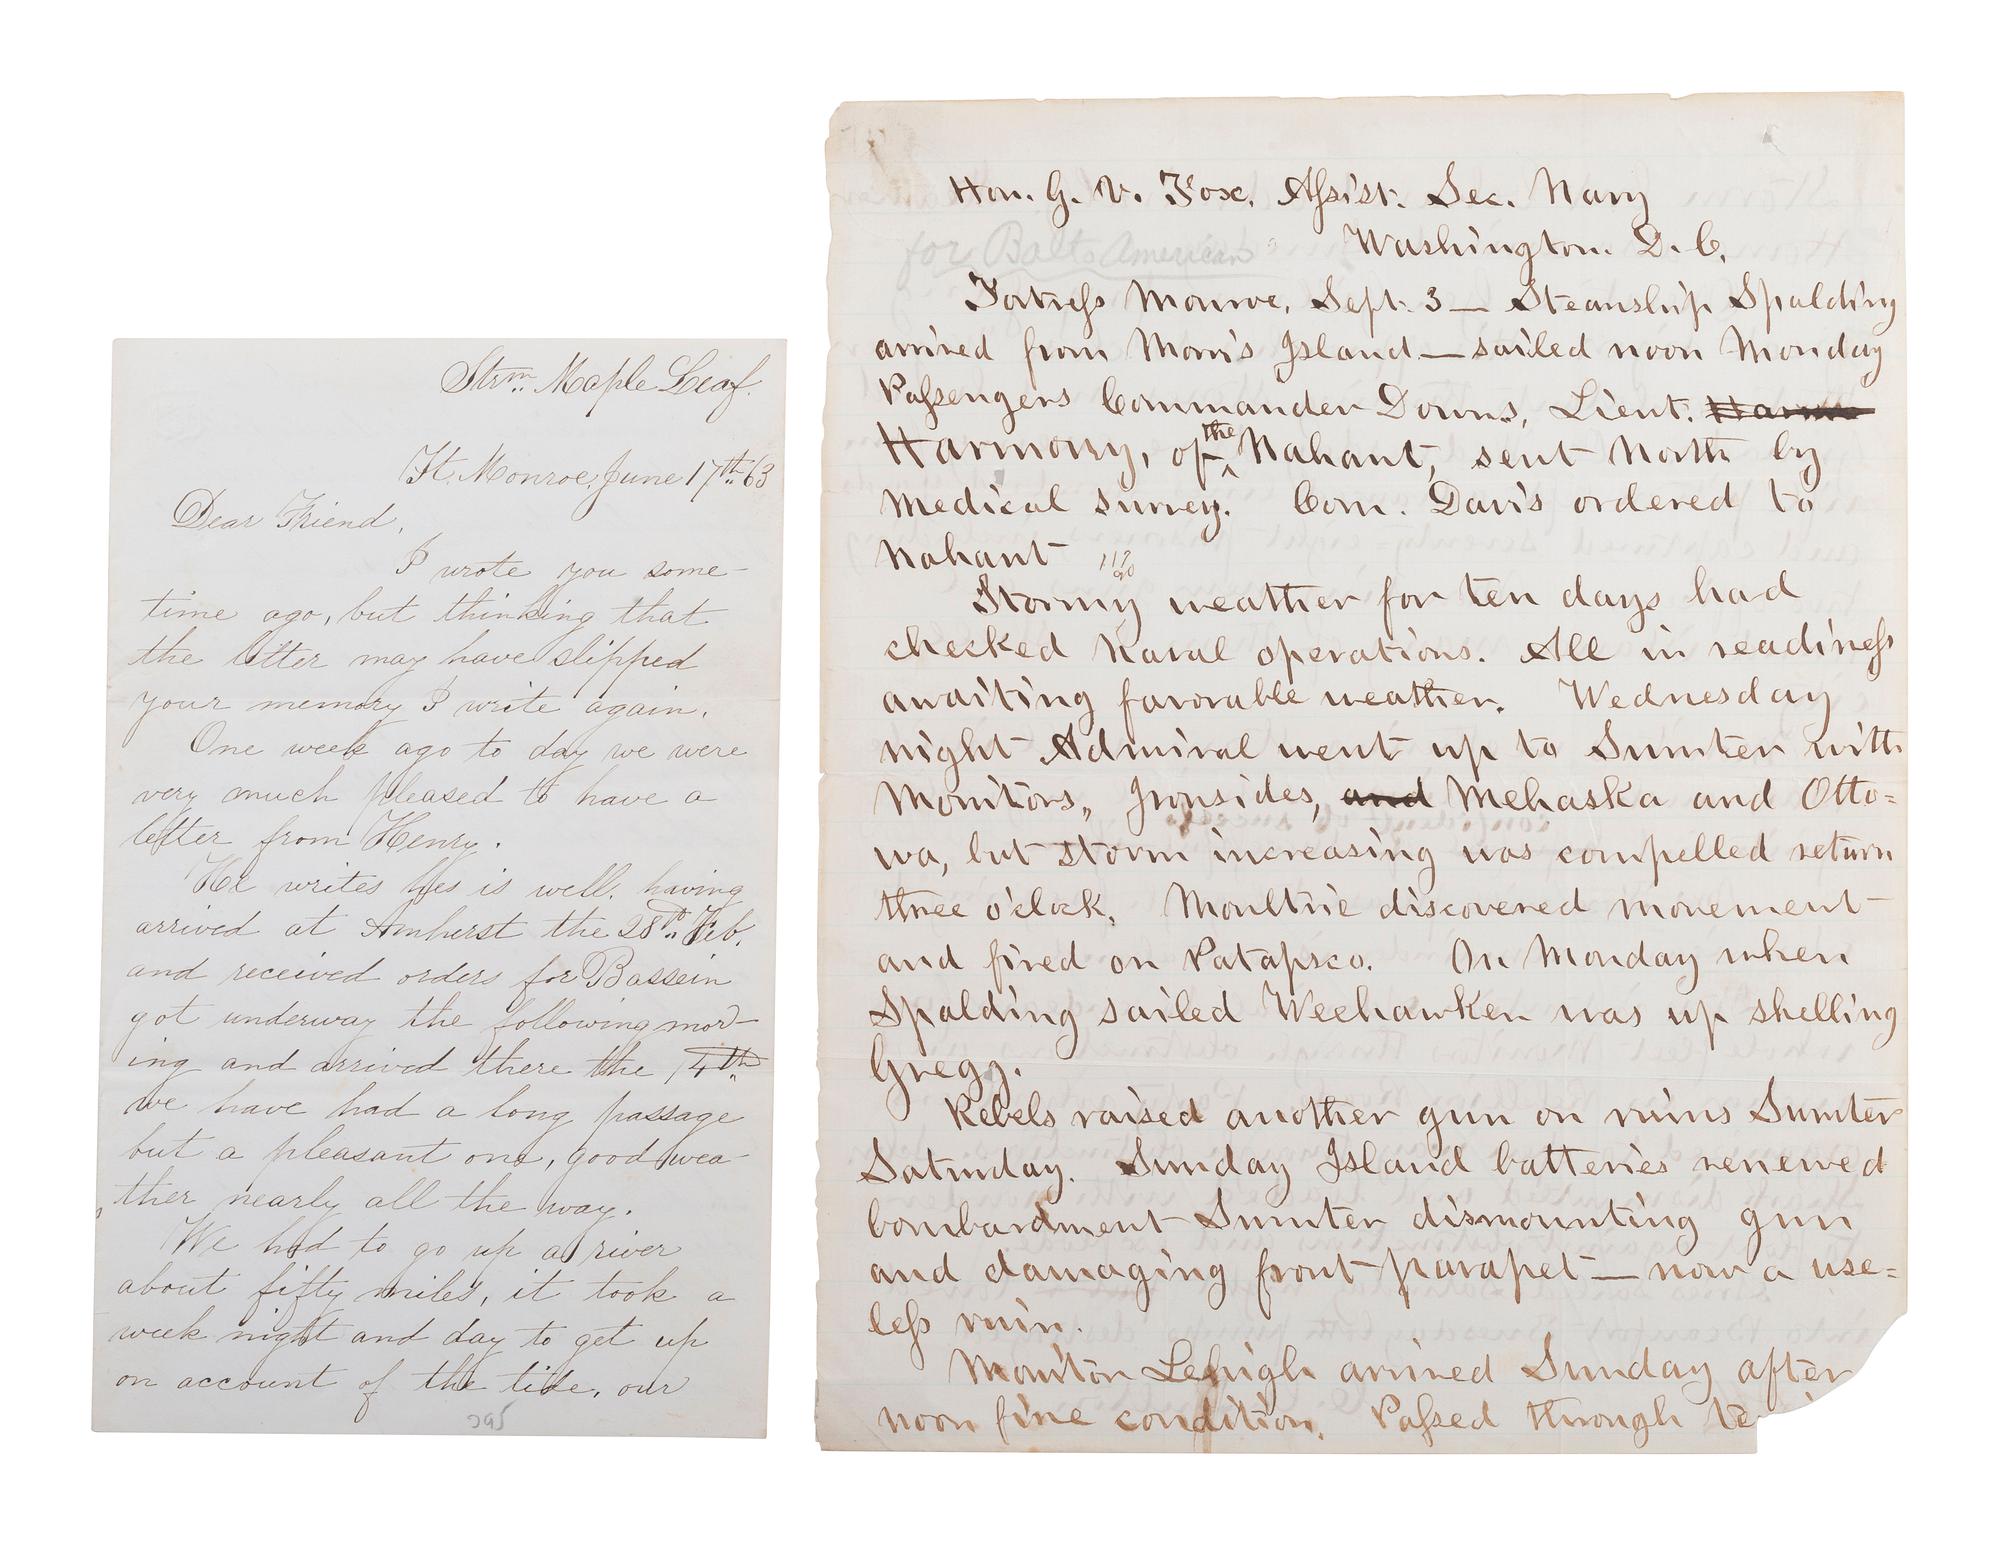 Strm. Maple Leaf.
Ft. Monroe, June 17th 63
Dear Friend,
I wrote you some-
time ago, but thinking that
the letter may have slipped
your memory I write again.
One week ago to day we were
very much pleased to have a
letter from Henry.
He writes hes is well. having
arrived at Amherst the 28th Feb.
and received orders for Bassein
got underway the following mor-
ing and arrived there the 14th
we have had a long passage
but a pleasant one, good wea-
ther nearly all the way.
We had to go up a river
about fifty miles, it took a
week night and day to get up
on account of the tide, our
395
Hon. G. V. Fox, Assist. Sec. Navy
Washington D. C.
for Balto American
Fortress Monroe, Sept. 3 — Steamship Spalding
arrived from Morris Island — sailed noon Monday
Passengers Commander Downs, Lieut.
Harmony, of the Nahant, sent North by
Medical Survey. Com. Davis ordered to
Nahant
Stormy weather for ten days had
checked Naval operations. All in readiness
awaiting favorable weather. Wednesday
night Admiral went up to Sumter with
Monitors, Ironsides, and Mehaska and Otto=
wa, but storm increasing was compelled return
three o'clock. Moultrie discovered movement
and fired on Patapsco. On Monday when
Spalding sailed Weehawken was up shelling
Gregg.
Rebels raised another gun on ruins Sumter
Saturday. Sunday Island batteries renewed
bombardment Sumter dismounting gun
and damaging front parapet — now a use=
less ruin.
Monitor Lehigh arrived Sunday after
noon fine condition. Passed through